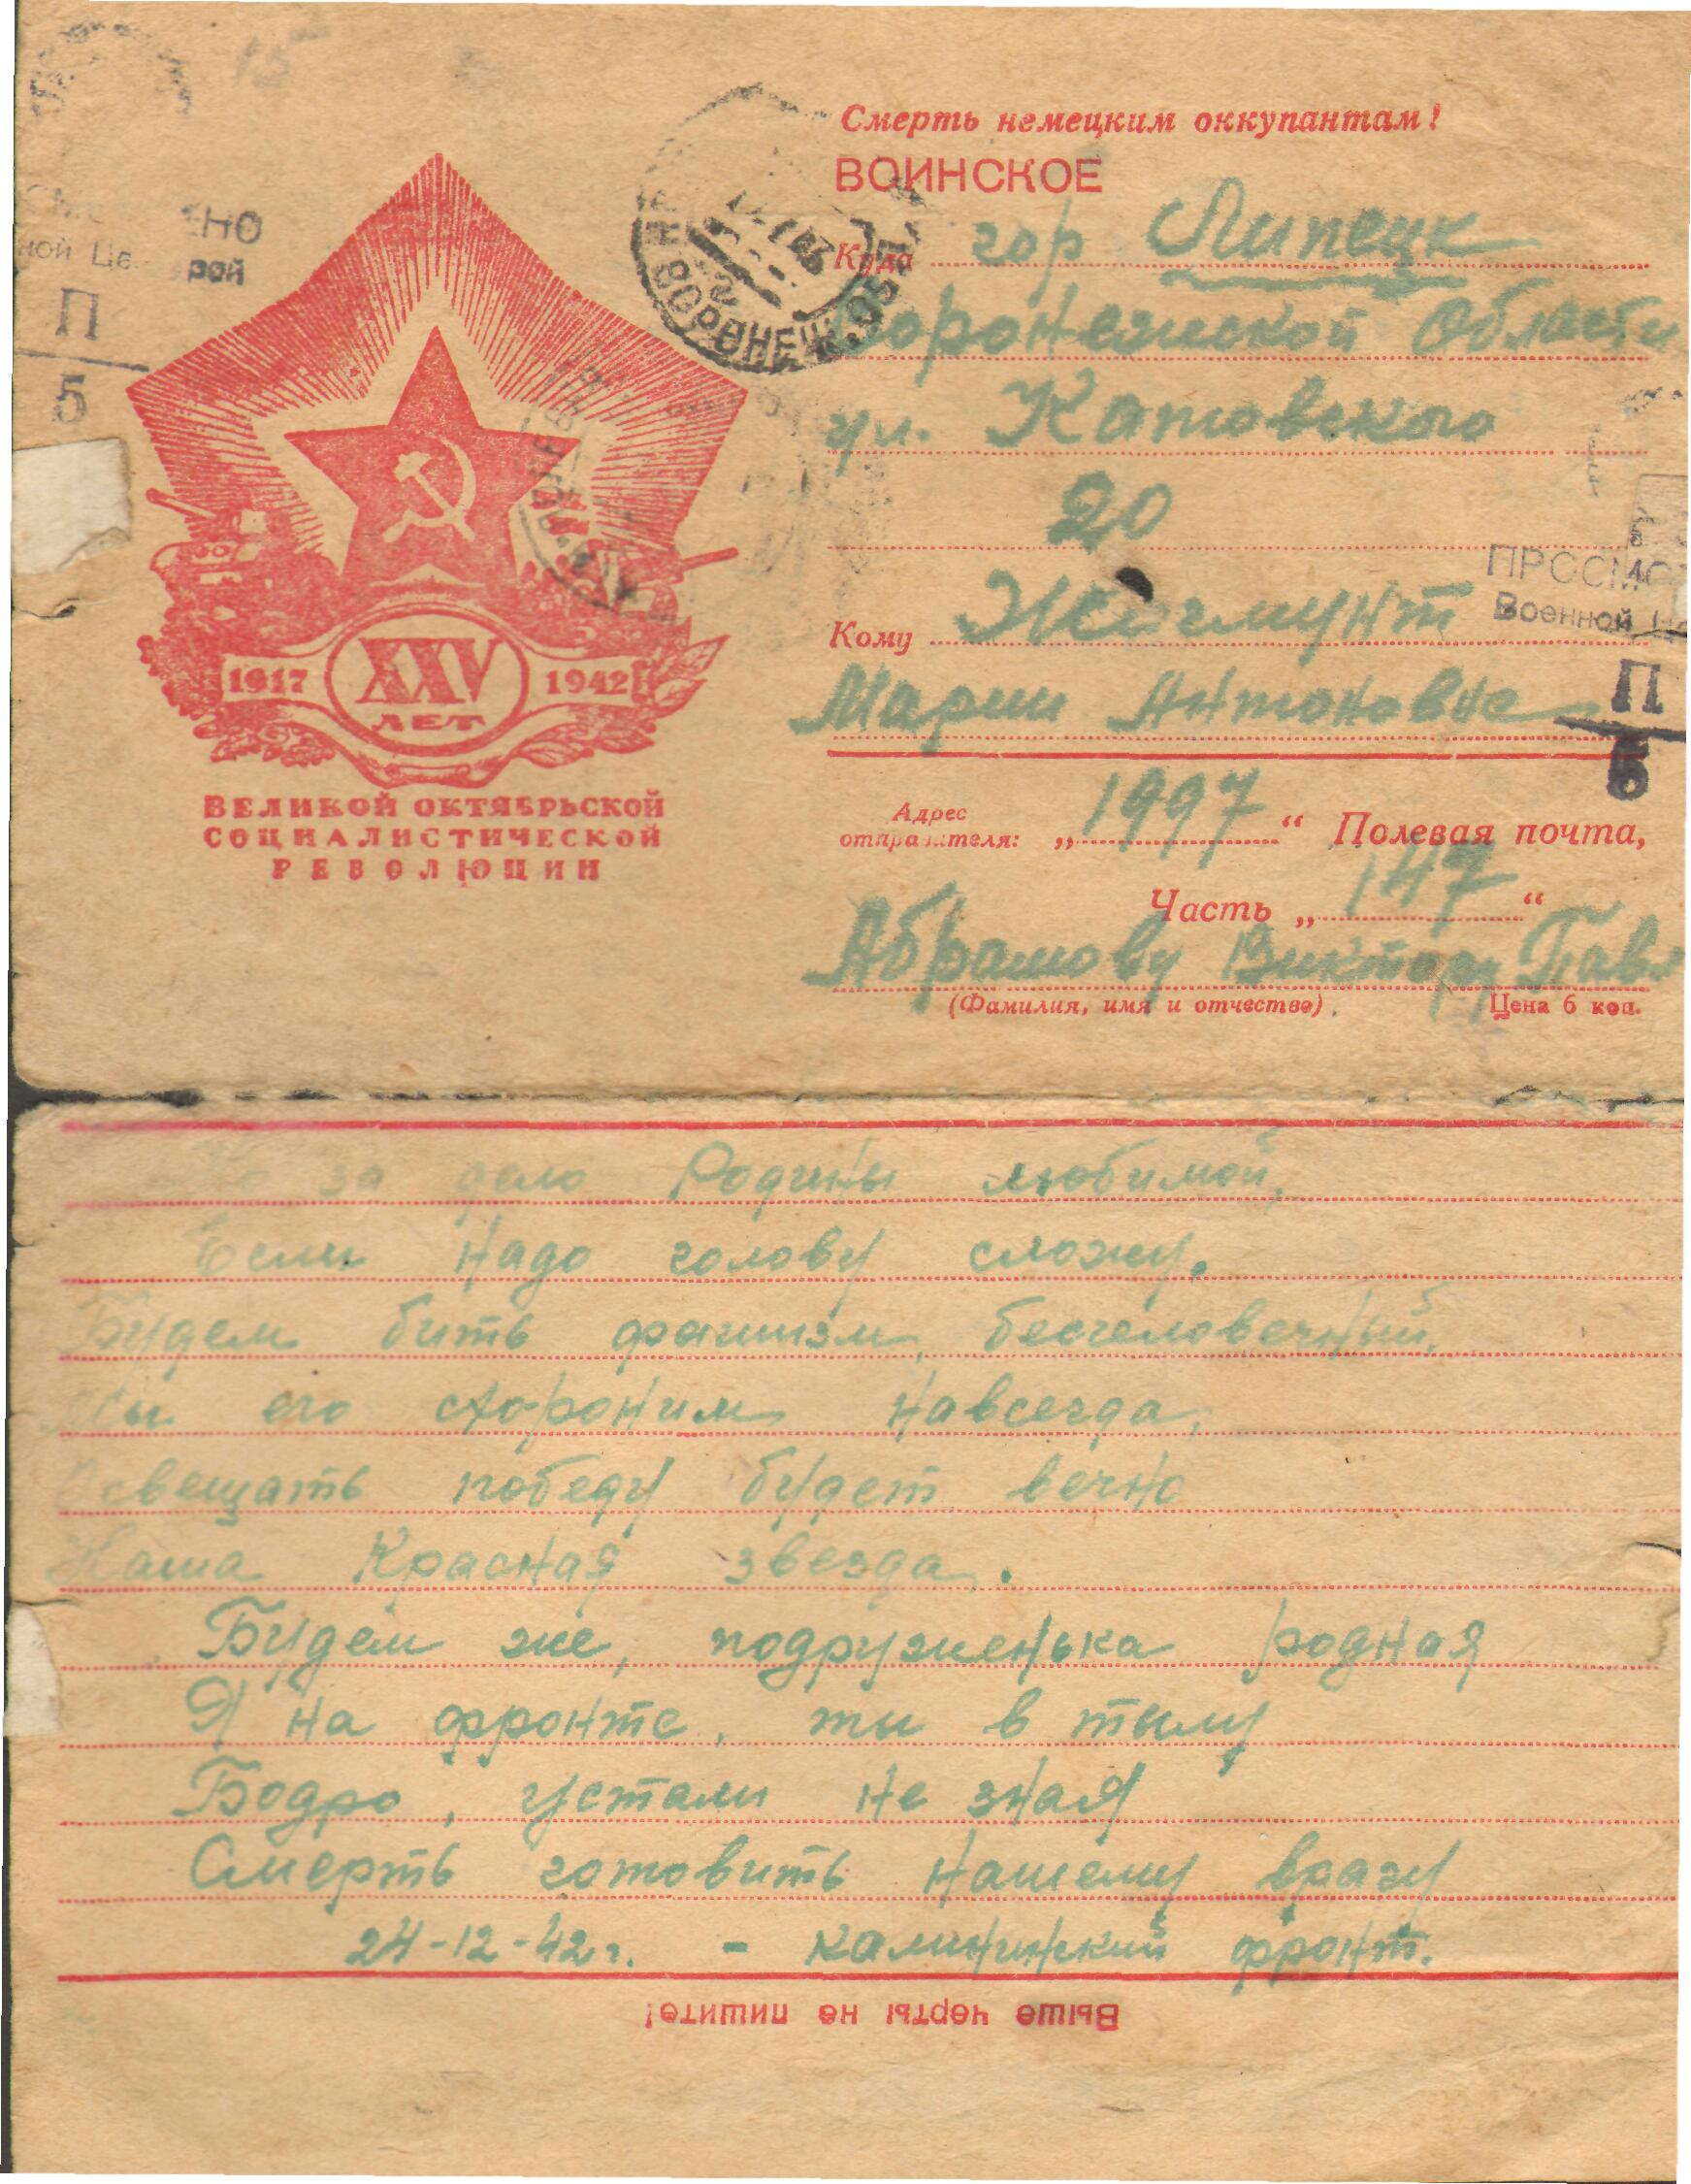 15
Смерть немецким оккупантам!
ВОИНСКОЕ
Куда гор Липецк
Воронежской Области
ул. Катовского
20
Кому Жигмунт
Марии Антоновне
Адрес отправителя: „1997“ Полевая почта,
Часть „147“
Абрамову Виктору Павл
(Фамилия, имя и отчество). Цена 6 коп.
ЕНО
ной Це рой
П
5
ВОРОНЕЖ. ОБЛ
ПРОСМО
Военной Це
П
5
1917 XXV 1942
ЛЕТ
ВЕЛИКОЙ ОКТЯБРЬСКОЙ
СОЦИАЛИСТИЧЕСКОЙ
РЕВОЛЮЦИИ
за дело Родины любимой,
Если надо голову сложу.
Будем бить фашизм бесчеловечный,
Мы его схороним навсегда,
Освещать победу будет вечно
Наша Красная звезда.
Будем же, подруженька родная
Я на фронте, ты в тылу
Бодро, устали не зная
Смерть готовить нашему врагу
24-12-42г. - калининский фронт.
Выше черты не пишите!